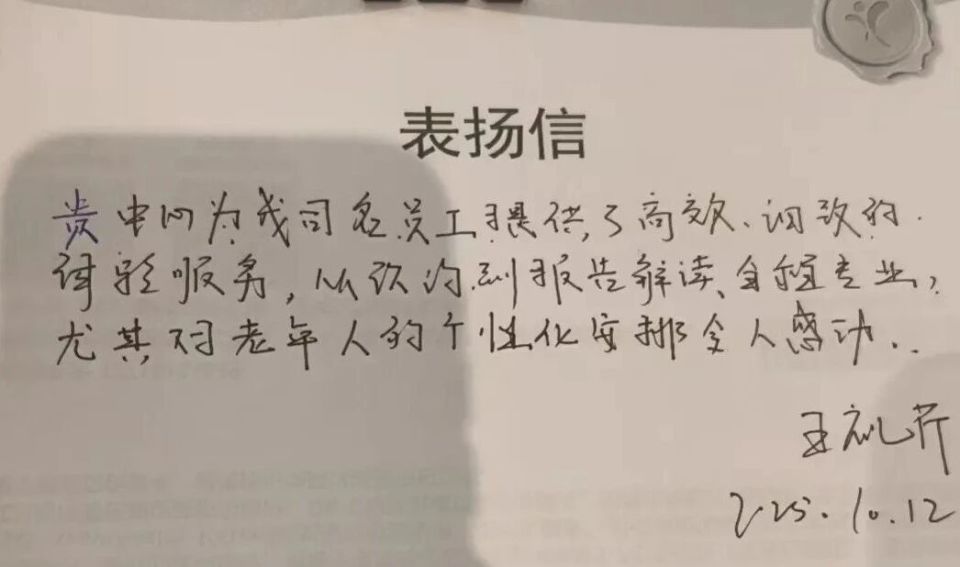 表扬信
贵中心为我司名员工提供了高效、细致的
体验服务，从预约到报告解读、全程专业，
尤其对老年人的个性化安排令人感动..
王礼芹
2025.10.12